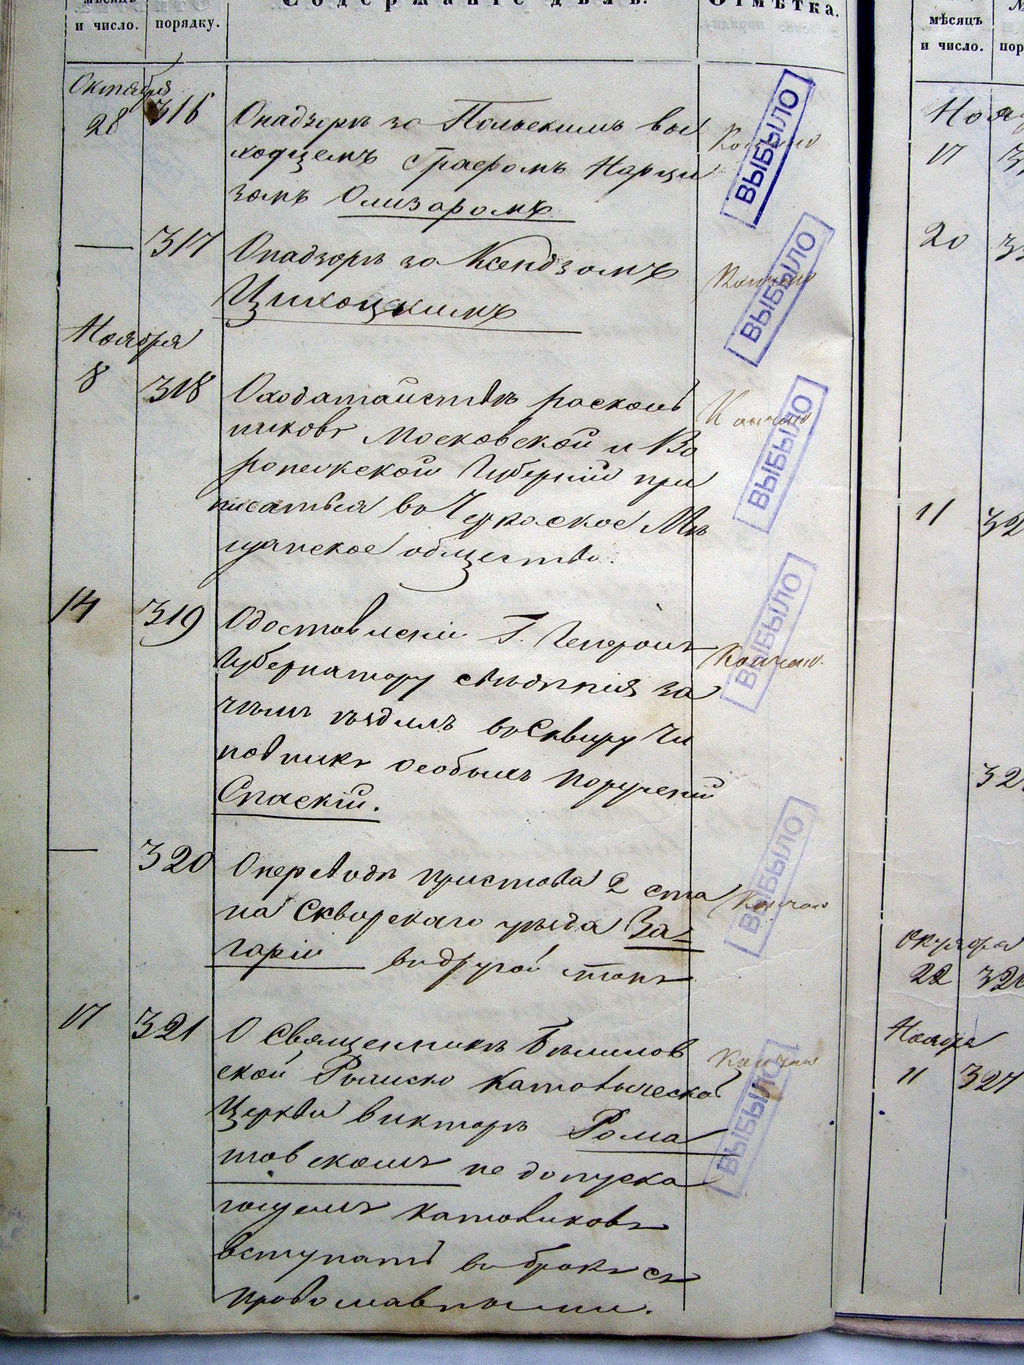 мѣсяцъ
и число.
порядку.
Содержаніе дѣлъ.
Отмѣтка.
Октября
28
316
О надзорѣ за Польскимъ вы
ходцемъ Графомъ Нарци
зомъ Олизаромъ
Кончено
ВЫБЫЛО
317
О надзорѣ за Ксендзомъ
Цихоцкимъ
Кончено
ВЫБЫЛО
Ноября
8
318
О ходатайствѣ расколь
никовъ Московской и Во
ронежской Губерніи при
писаться въ Черкаское Мѣ
щанское общество.
Кончено
ВЫБЫЛО
14
319
О доставленіи Г. Генералъ
Губернатору свѣденія за
чѣмъ ѣздилъ въ Сквиру Чи
новникъ особыхъ порученій
Спаскій.
Кончено.
ВЫБЫЛО
320
О переводѣ пристава 2 ста
на Сквирскаго уѣзда За-
гаріи въ другой станъ
Кончено
ВЫБЫЛО
17
321
О Священникѣ Бѣлилов
ской Римско Католической
Церкви Викторѣ Рома
товскомъ не допуска
ющемъ католиковъ
вступать въ бракъ съ
православными.
Кончено
ВЫБЫЛО
мѣсяцъ
и число.
пор
Нояб
17
20
11
32
32
Октября
22
326
Ноября
11
327